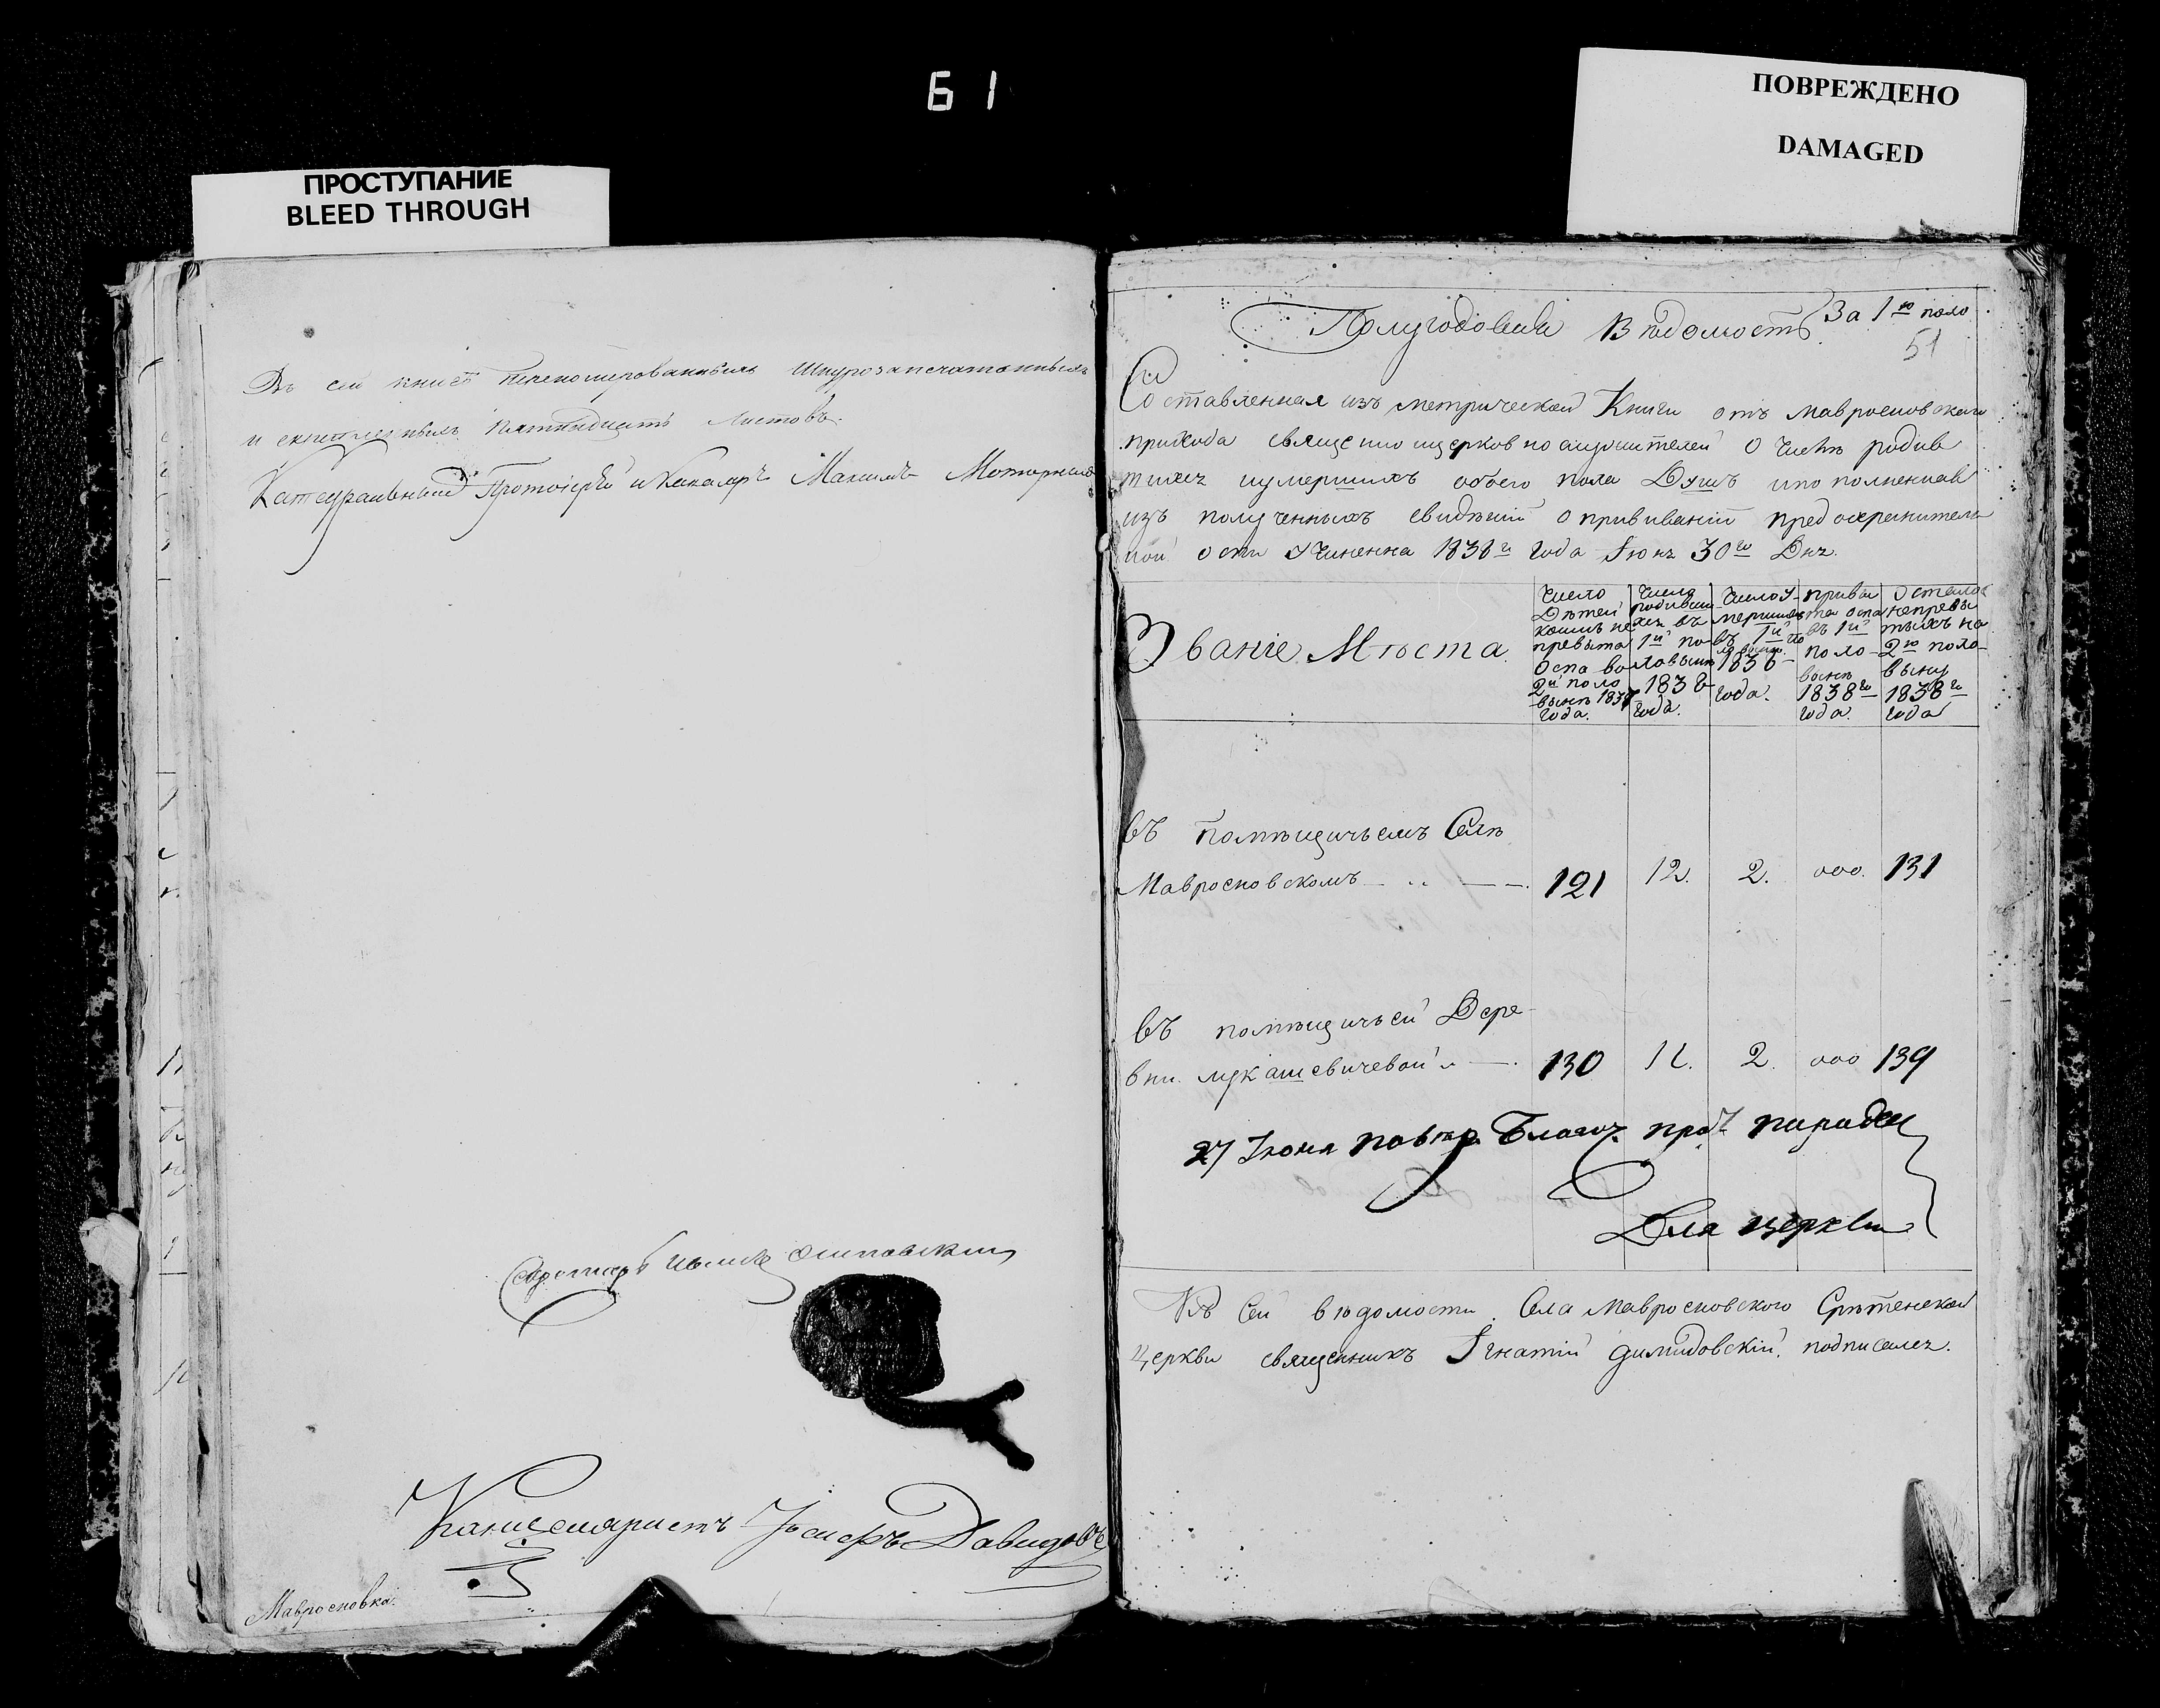 Б1
ПОВРЕЖДЕНО
DAMAGED
ПРОСТУПАНИЕ
BLEED THROUGH
Въ сей книгѣ перенумерованныхъ шнурозапечатанныхъ
и скрепленныхъ пятнадцать листовъ.
Катедральный Протоіерей и Кавалеръ Максимъ
Секретарь
Канцеляристъ Іосифъ Давидовъ
Мавроеновка.
Полугодовая Вѣдомость За 1ю поло
51
Составленная изъ метрической Книги отъ Мавроеновскаго
прихода священно ицерковнослужителей О Числѣ родив
шихся иумершихъ обоего пола Душъ ипо полненная
изъ полученныхъ свидѣній опрививаній предохранитель
ной оспы Учиненна 1838го Года Іюня 30го Дня.
Званіе Мѣста
Число Дѣтей коимъ не превыта Оспа во 2й поло вынѣ 1837 Года.
Числа родивши хся въ 1й по ловынѣ 1838 Года.
Число У мершихъ въ 1й по ловынѣ 1838 Года.
привы та оспа въ 1й поло вынѣ 1838го Года.
Осталось непревы тыхъ на 2ю поло выну 1838го Года
въ помѣщичьемъ Селѣ
Мавроеновскомъ 121 12. 2. 000. 131
въ помѣщичьей Дере
вни лукашевичевой 130 11. 2. 000 139
27 Іюня
Для церкви
Къ Сей вѣдомости Села Мавроеновского Срѣтенской
Церкви священникъ Ігнатій димидовскій подписался.